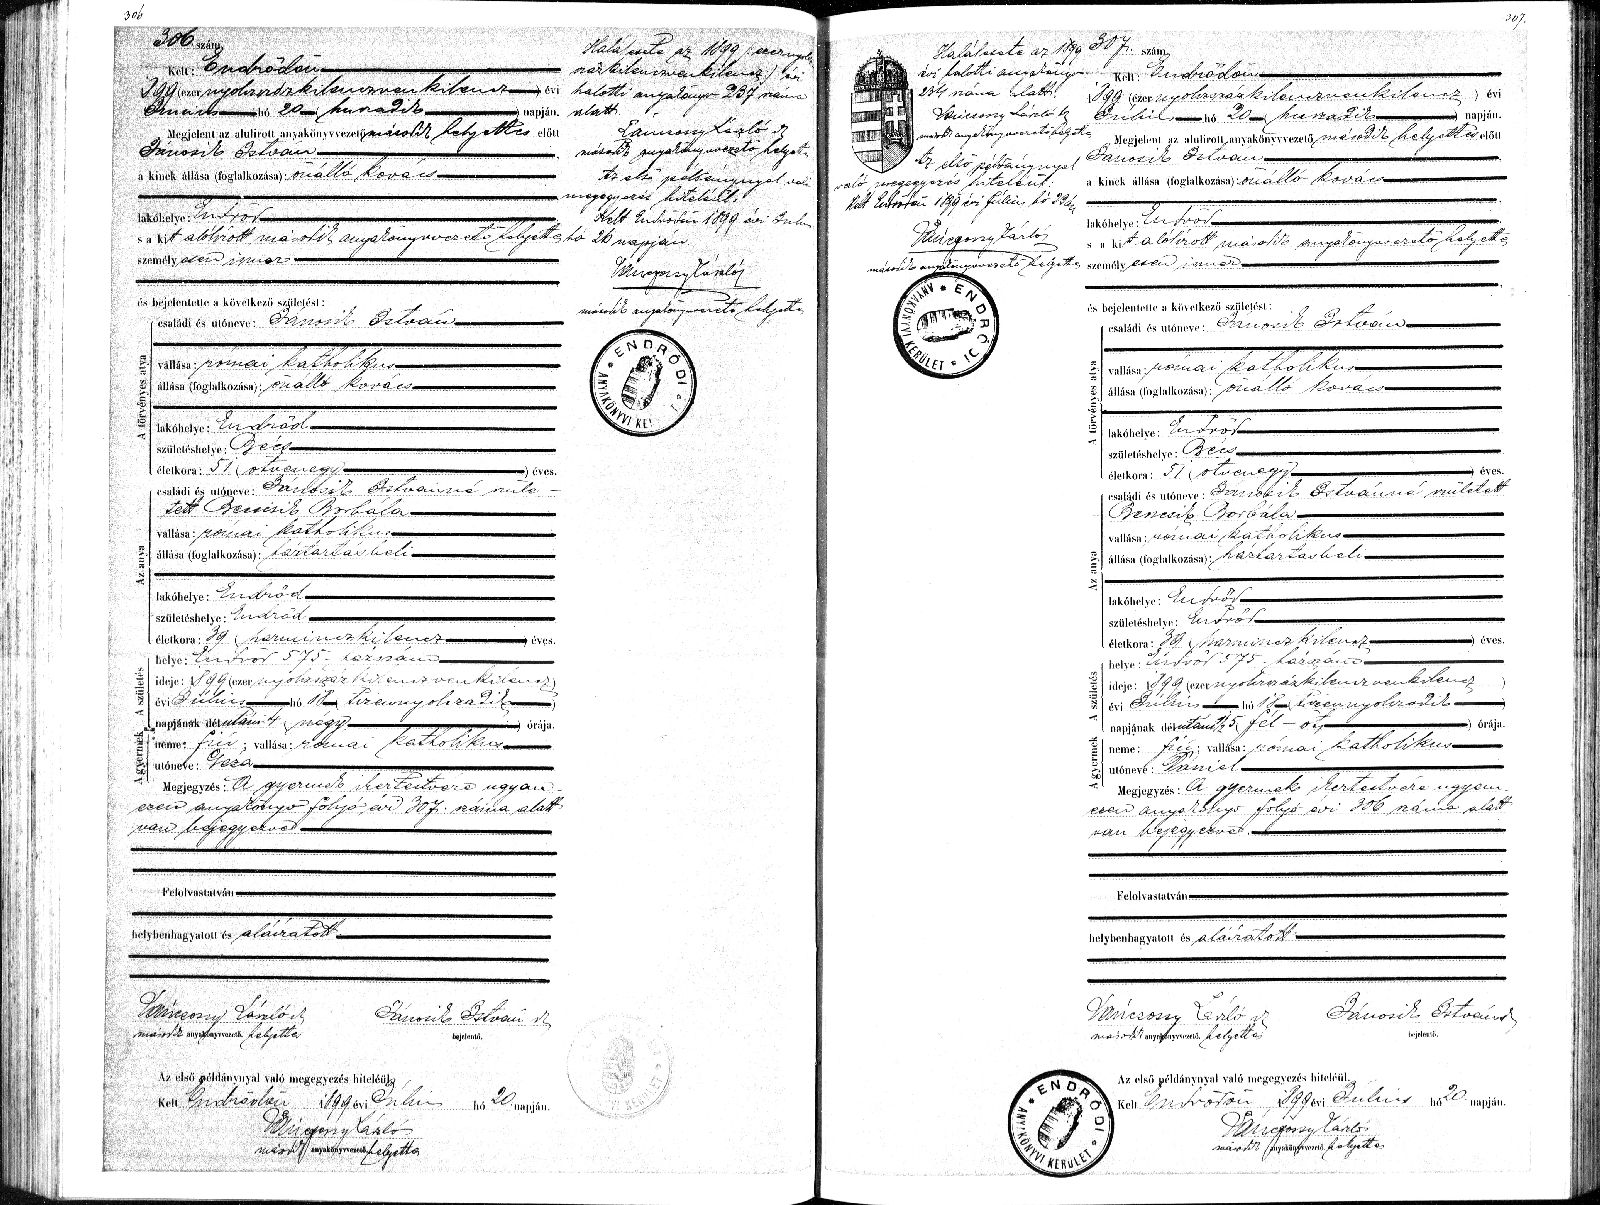 306
306 szám.
Kelt: Endrődön
1899 (ezer nyolczszázkilenczvenkilencz) évi
Julius hó 20 (huszadik) napján.
Megjelent az alulirott anyakönyvvezető második helyettes előtt
Jánosik István
a kinek állása (foglalkozása): önálló kovács
lakóhelye: Endrőd
s a kit alólirott második anyakönyvvezető helyettes
személyesen ismer
és bejelentette a következő születést:
A törvényes atya
családi és utóneve: Jánosik István
vallása: római katholikus
állása (foglalkozása): önálló kovács
lakóhelye: Endrőd
születéshelye: Bécs
életkora: 51 (ötvenegy) éves.
Az anya
családi és utóneve: Jánosik Istvánné szüle-
tett Bencsik Borbála
vallása: római katholikus
állása (foglalkozása): háztartásbeli
lakóhelye: Endrőd
születéshelye: Endrőd
életkora: 39 (harminczkilencz) éves.
A születés
helye: Endrőd 575. házszám
ideje: 1899 (ezer nyolczszázkilenczvenkilencz)
évi Július hó 18 (tizennyolczadik)
napjának délutáni 4 (négy) órája.
A gyermek
neme: fiú; vallása: római katholikus
utóneve: Géza
Megjegyzés: A gyermek ikertestvére ugyan-
ezen anyakönyv folyó évi 307. száma alatt
van bejegyezve
Felolvastatván
helybenhagyatott és aláiratott
Vánczony László sk
második anyakönyvvezető. helyettes
Jánosik István sk
bejelentő.
Az első példánynyal való megegyezés hiteléül,
Kelt Endrődön 1899 évi Július hó 20 napján.
Vánczony László
második anyakönyvvezető. helyettes
Halálesete az 1899 (ezernyolcz-
százkilenczvenkilencz) évi
halotti anyakönyv 237 száma
alatt.
Vánczony László sk
második anyakönyvvezető helyettes
Az első példánynyal való
megegyezés hiteléül.
Kelt Endrődön 1899 évi Julius
hó 26 napján
Vánczony László
második anyakönyvvezető helyettes
ENDRŐDI ANYAKÖNYVI KER
307.
307. szám.
Kelt: Endrődön
1899 (ezer nyolczszázkilenczvenkilencz) évi
Július hó 20 (huszadik) napján.
Megjelent az alulirott anyakönyvvezető második helyettes előtt
Jánosik István
a kinek állása (foglalkozása): önálló kovács
lakóhelye: Endrőd
s a kit alólirott második anyakönyvvezető helyettes
személyesen ismer
és bejelentette a következő születést:
A törvényes atya
családi és utóneve: Jánosik István
vallása: római katholikus
állása (foglalkozása): önálló kovács
lakóhelye: Endrőd
születéshelye: Bécs
életkora: 51 (ötvenegy) éves.
Az anya
családi és utóneve: Jánosik Istvánné született
Bencsik Borbála
vallása: római katholikus
állása (foglalkozása): háztartásbeli
lakóhelye: Endrőd
születéshelye: Endrőd
életkora: 39 (harminczkilencz) éves.
A születés
helye: Endrőd 575. házszám
ideje: 1899 (ezer nyolczszázkilenczvenkilencz)
évi Július hó 18 (tizennyolczadik)
napjának délutáni ½5 (fél-öt) órája.
A gyermek
neme: fiú; vallása: római katholikus
utóneve: Dániel
Megjegyzés: A gyermek ikertestvére ugyan
ezen anyakönyv folyó évi 306 száma alatt
van bejegyezve.
Felolvastatván
helybenhagyatott és aláiratott
Vánczony László sk
második anyakönyvvezető. helyettes
Jánosik István sk
bejelentő.
Az első példánynyal való megegyezés hiteléül,
Kelt Endrődön, 1899 évi Július hó 20 napján.
Vánczony László
második anyakönyvvezető. helyettes
ENDRŐDI ANYAKÖNYVI KERÜLET
Halálesete az 1899
évi halotti anyakönyv
234 száma alatt.
Vánczony László sk
második anyakönyvvezető helyettes
Az első példánynyal
való megegyezés hiteléül.
Kelt Endrődön 1899 évi Július hó 22én
Vánczony László
második anyakönyvvezető helyettes
ENDRŐDI ANYAKÖNYVI KERÜLET